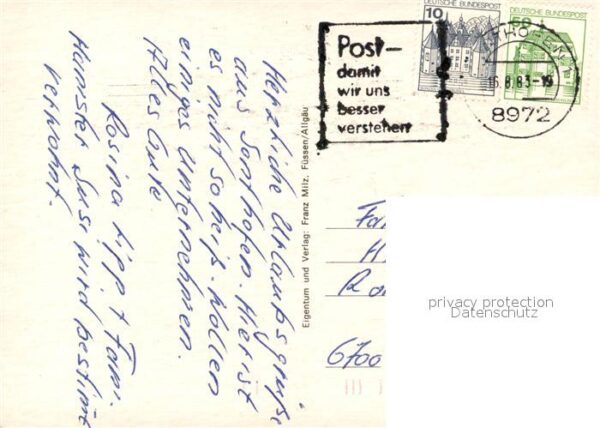 Herzliche Urlaubsgrüße
aus Sonthofen. Hier ist
es nicht so heiß. Wollen
einiges unternehmen.
Alles Gute
Rosina Lipp + Fam.
Hamster Susi wird bestimmt
verwöhnt.
Eigentum und Verlag: Franz Milz, Füssen/Allgäu
Post-
damit
wir uns
besser
verstehen
10 DEUTSCHE BUNDESPOST
50 DEUTSCHE BUNDESPOST
THOFEN 1
16.8.83-19
8972
Fa
H
Ro
6700
privacy protection
Datenschutz